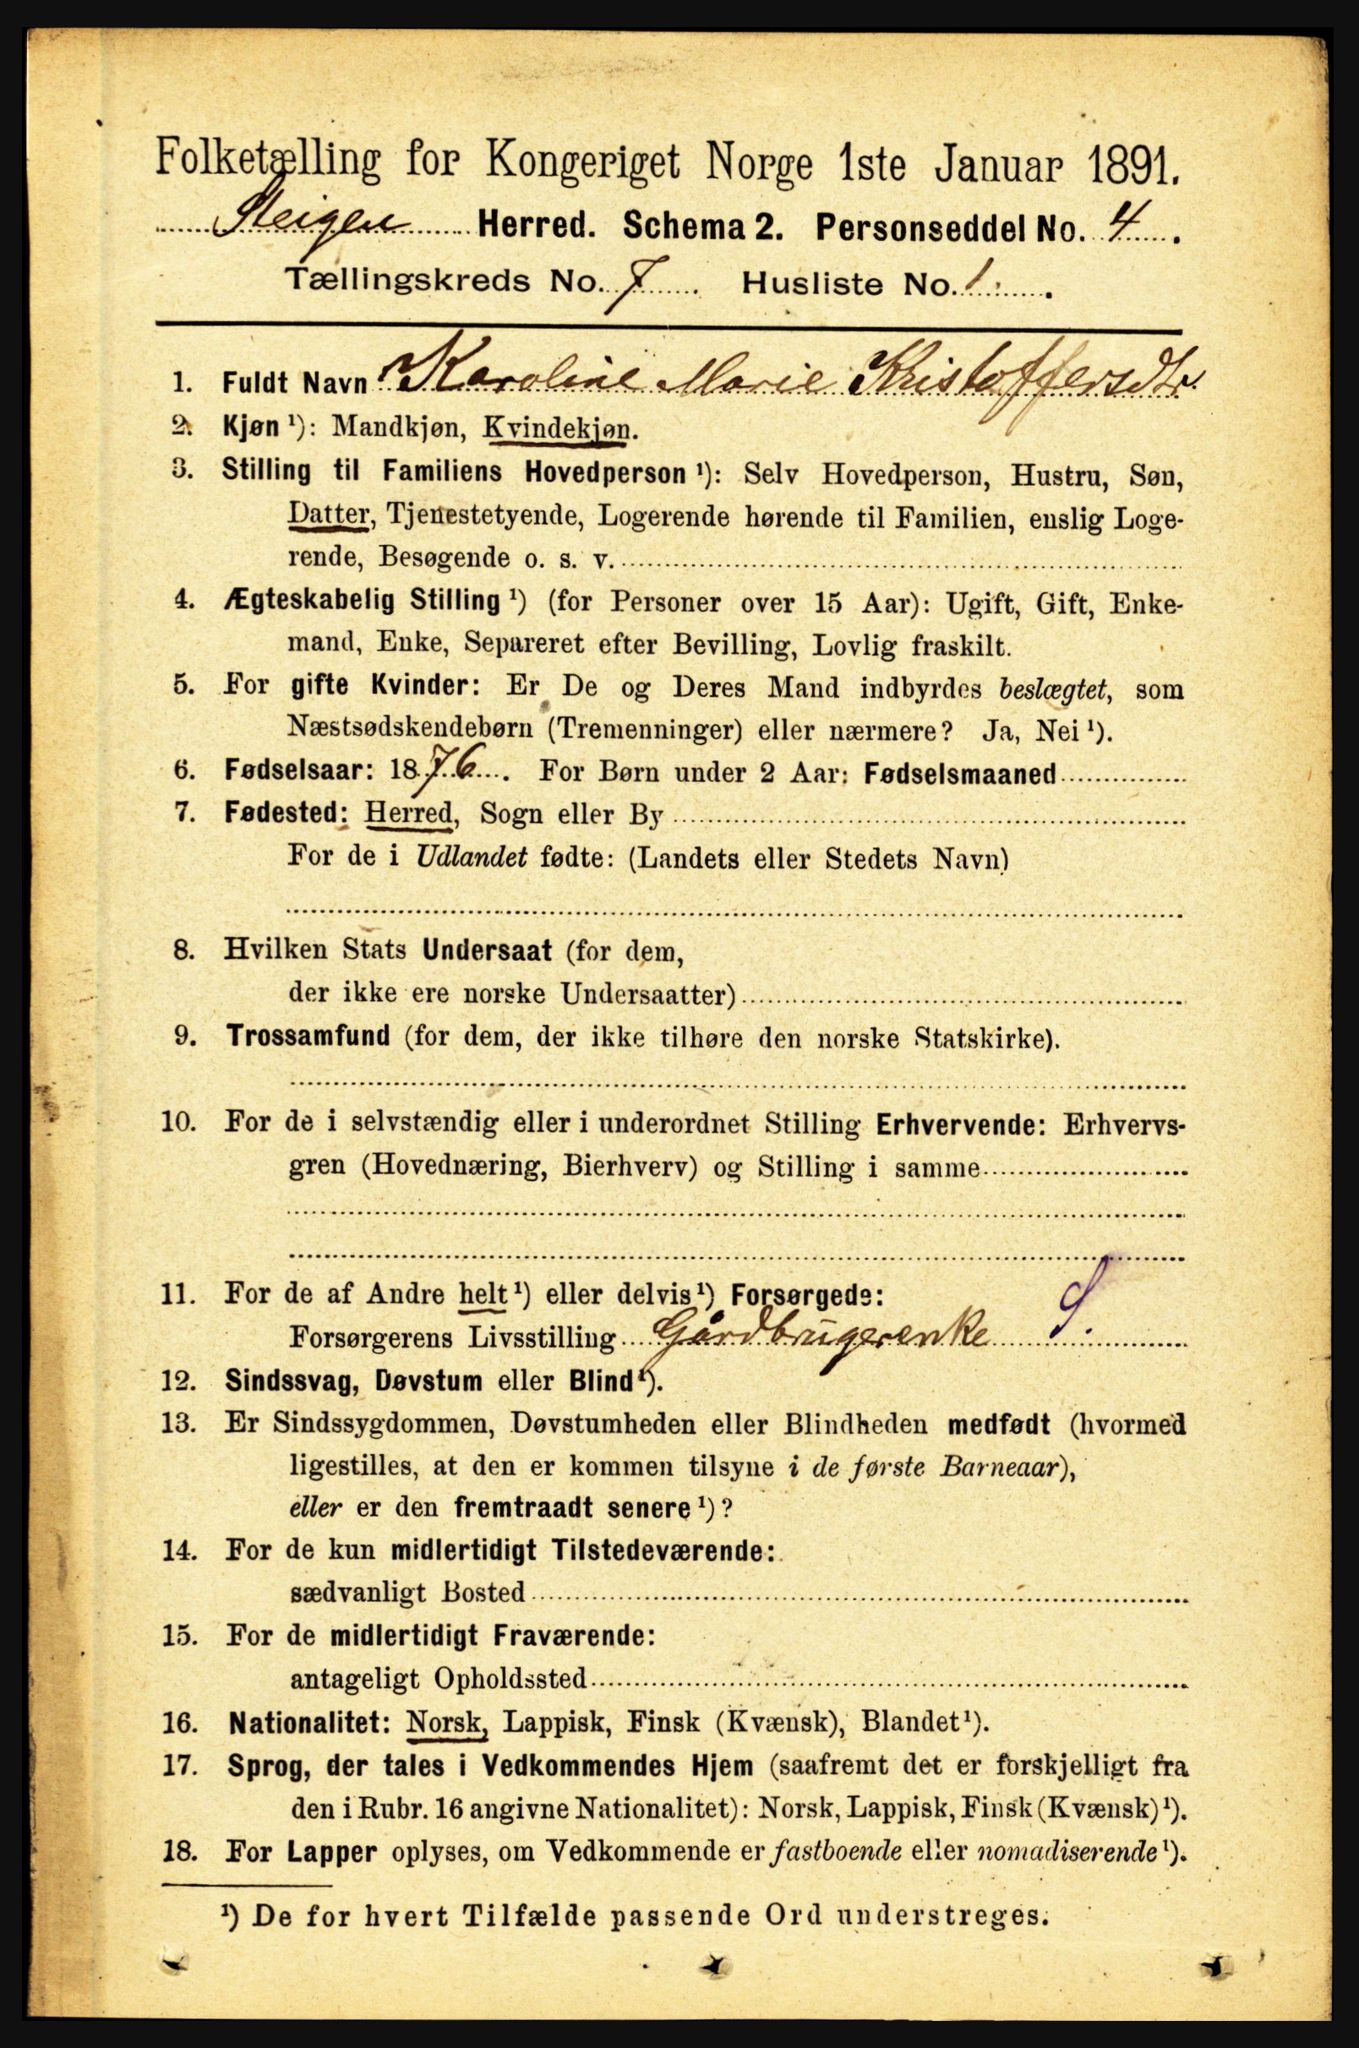 Folketælling for Kongeriget Norge 1ste Januar 1891.
Steigen Herred. Schema 2. Personseddel No. 4.
Tællingskreds No. 7. Husliste No. 1.
1. Fuldt Navn Karoline Marie Kristoffersdtr.
2. Kjøn ¹): Mandkjøn, Kvindekjøn.
3. Stilling til Familiens Hovedperson ¹): Selv Hovedperson, Hustru, Søn,
Datter, Tjenestetyende, Logerende hørende til Familien, enslig Loge-
rende, Besøgende o. s. v.
4. Ægteskabelig Stilling ¹) (for Personer over 15 Aar): Ugift, Gift, Enke-
mand, Enke, Separeret efter Bevilling, Lovlig fraskilt.
5. For gifte Kvinder: Er De og Deres Mand indbyrdes beslægtet, som
Næstsødskendebørn (Tremenninger) eller nærmere? Ja, Nei ¹).
6. Fødselsaar: 1876. For Børn under 2 Aar: Fødselsmaaned
7. Fødested: Herred, Sogn eller By
For de i Udlandet fødte: (Landets eller Stedets Navn)
8. Hvilken Stats Undersaat (for dem,
der ikke ere norske Undersaatter)
9. Trossamfund (for dem, der ikke tilhøre den norske Statskirke).
10. For de i selvstændig eller i underordnet Stilling Erhvervende: Erhvervs-
gren (Hovednæring, Bierhverv) og Stilling i samme
11. For de af Andre helt ¹) eller delvis ¹) Forsørgede:
Forsørgerens Livsstilling Gårdbrugerenke S.
12. Sindssvag, Døvstum eller Blind ¹).
13. Er Sindssygdommen, Døvstumheden eller Blindheden medfødt (hvormed
ligestilles, at den er kommen tilsyne i de første Barneaar),
eller er den fremtraadt senere ¹)?
14. For de kun midlertidigt Tilstedeværende:
sædvanligt Bosted
15. For de midlertidigt Fraværende:
antageligt Opholdssted
16. Nationalitet: Norsk, Lappisk, Finsk (Kvænsk), Blandet ¹).
17. Sprog, der tales i Vedkommendes Hjem (saafremt det er forskjelligt fra
den i Rubr. 16 angivne Nationalitet): Norsk, Lappisk, Finsk (Kvænsk) ¹).
18. For Lapper oplyses, om Vedkommende er fastboende eller nomadiserende ¹).
¹) De for hvert Tilfælde passende Ord understreges.